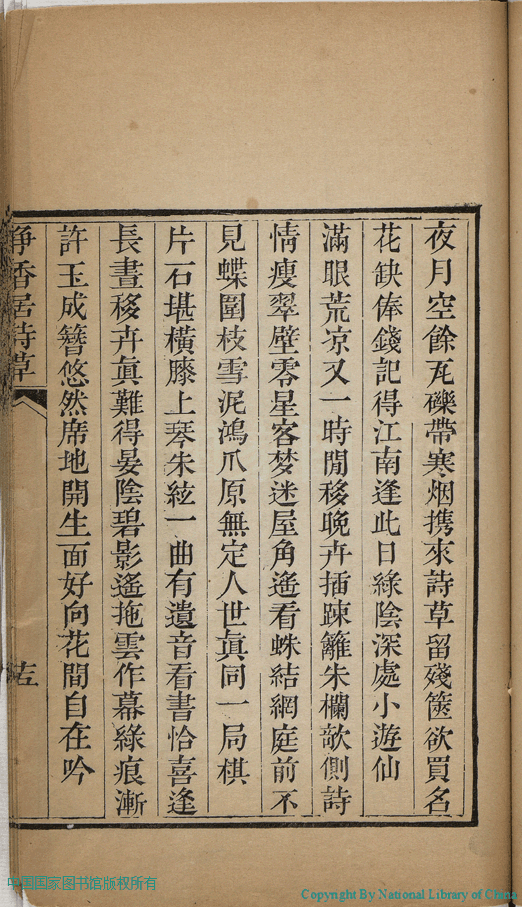 夜月空餘瓦礫帶寒烟携來詩草留殘篋欲買名
花缺俸錢記得江南逢此日綠陰深處小遊仙
滿眼荒凉又一時閒移晚卉插踈籬朱欄欹側詩
情瘦翠壁零星客梦迷屋角遙看蛛結網庭前不
見蝶圍枝雪泥鴻爪原無定人世眞同一局棋
片石堪橫膝上琴朱絃一曲有遺音看書恰喜逢
長晝移卉眞難得晏陰碧影遙拖雲作幕綠痕漸
許玉成簪悠然席地開生面好向花間自在吟
淨香居詩草
十五
中国国家图书馆版权所有
Copyright By National Library of China